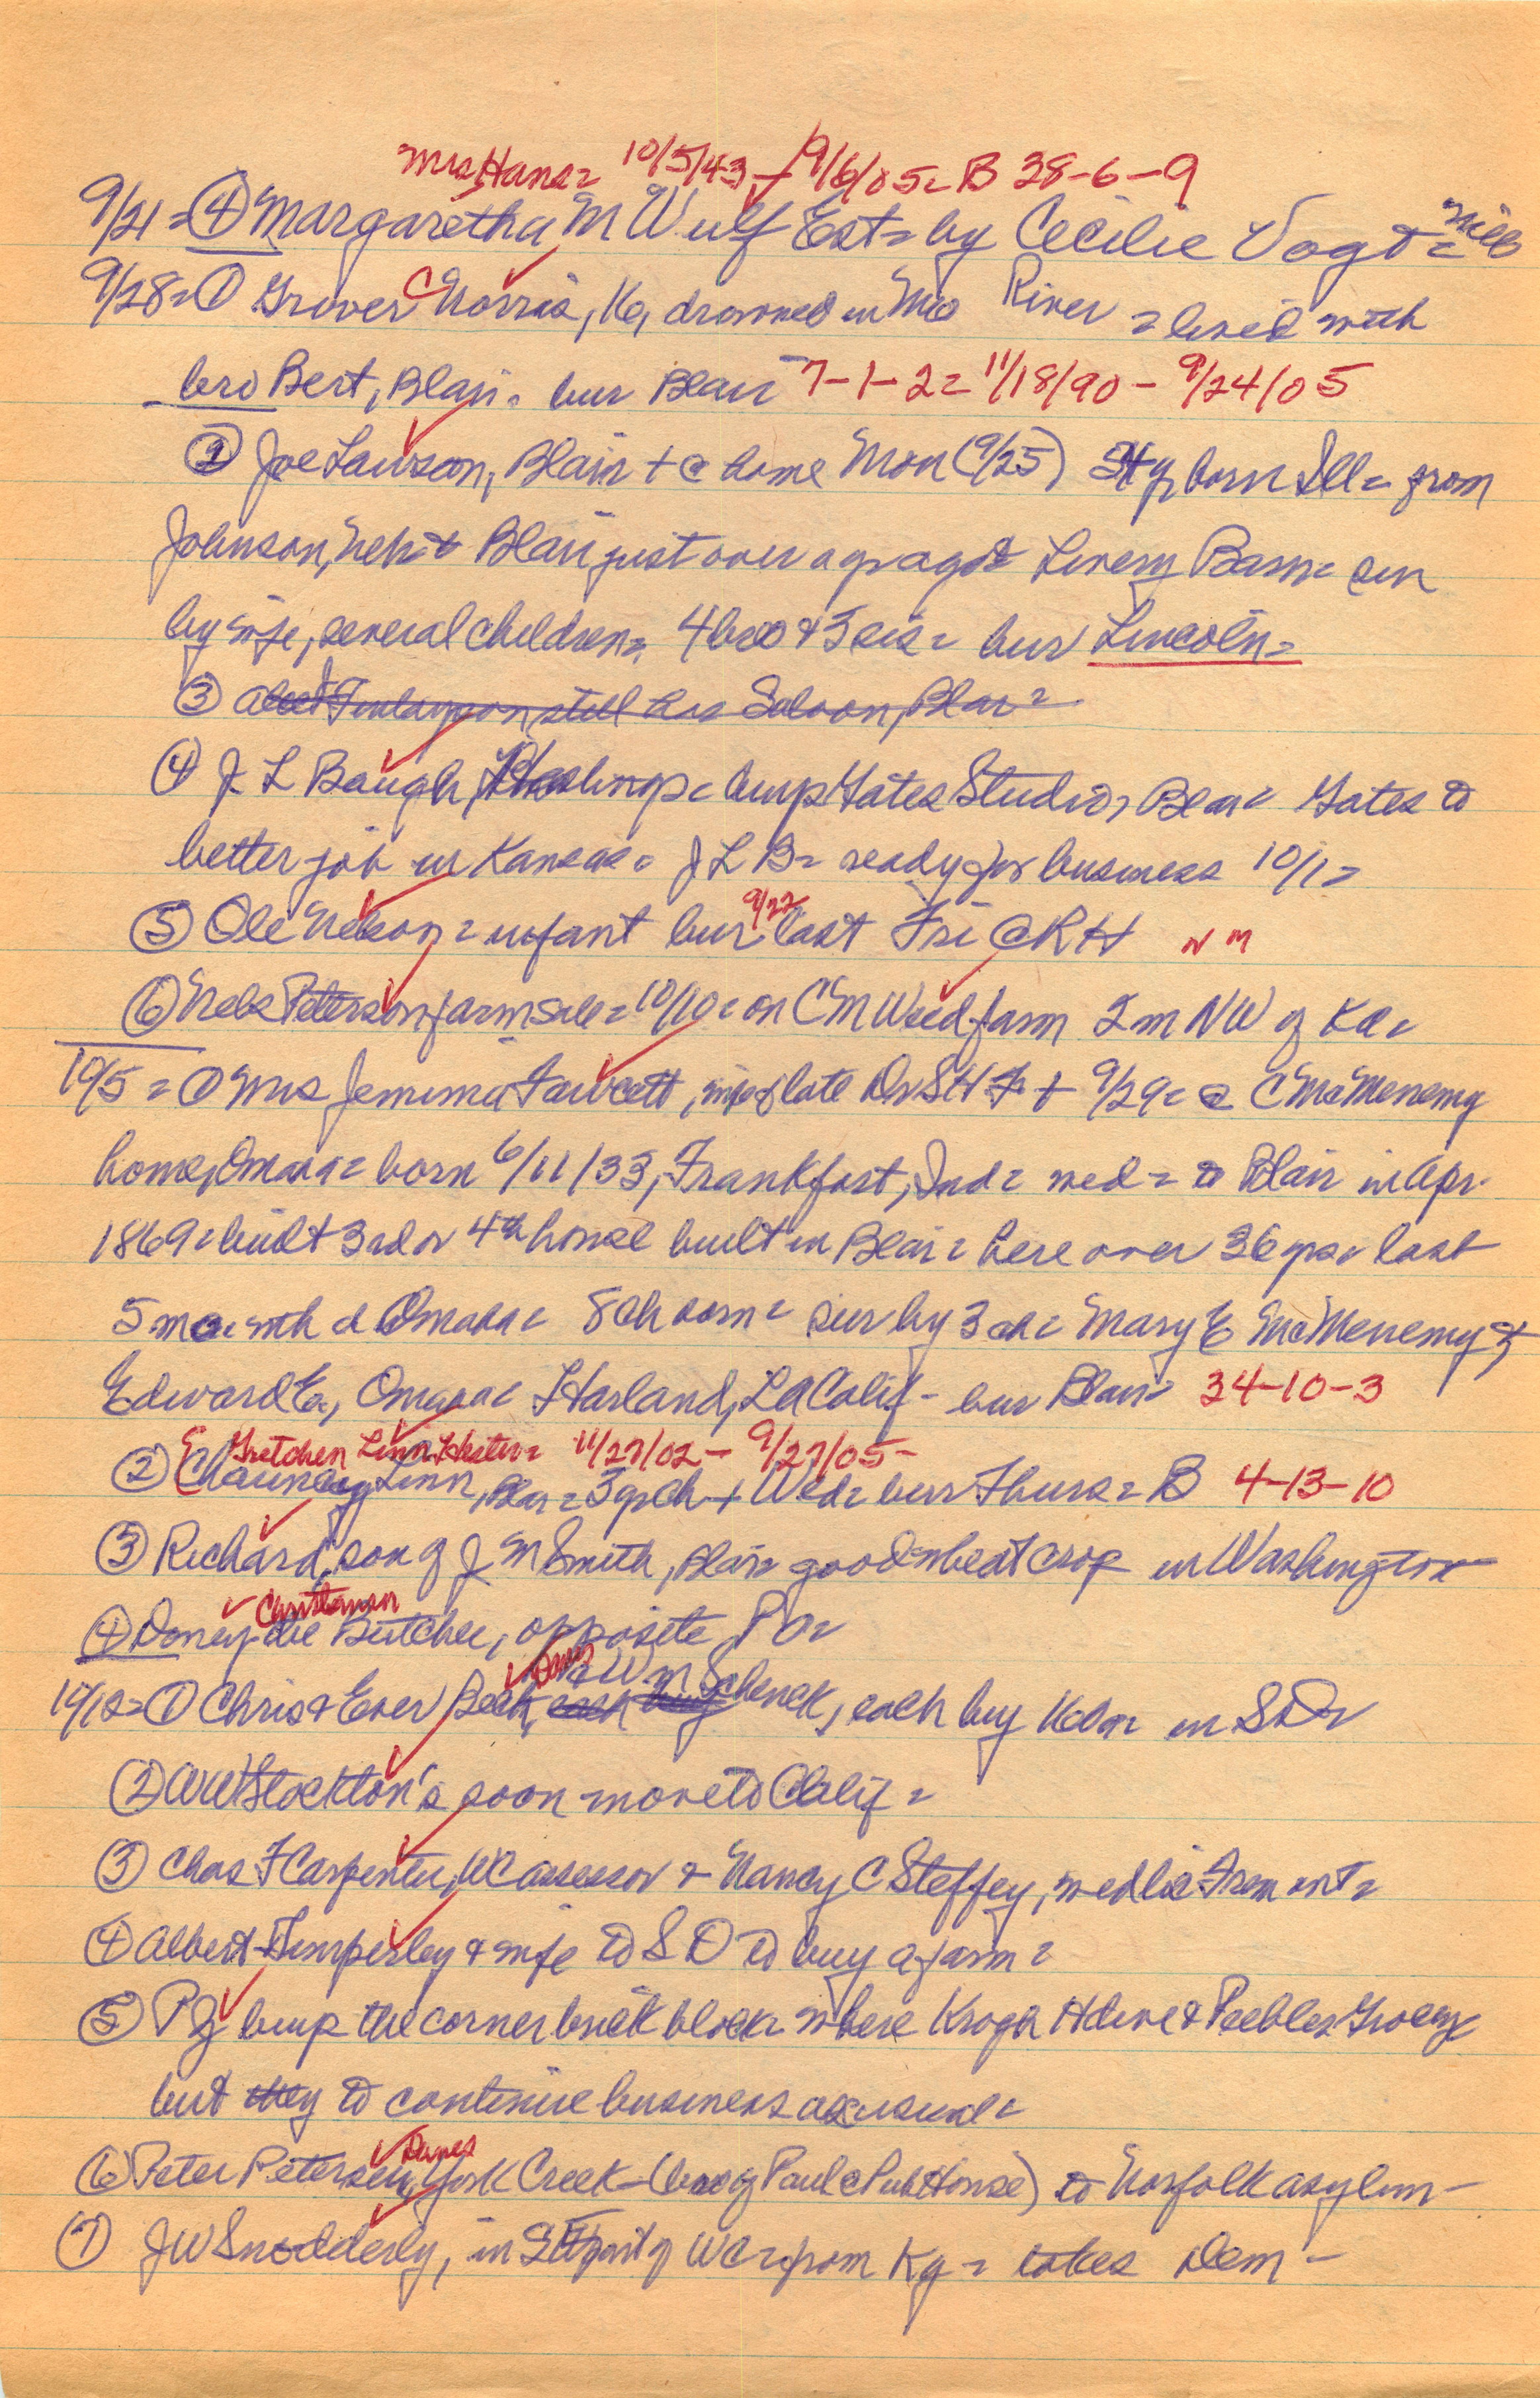 Mrs Hans= 10/5/43 - 9/6/05= B 38-6-9
9/21= ④ Margaretha M Wulf Est= by Cecilie Vogt=
9/28= ① Grover C Norris, drowned in Mo River = lived with
bro Bert, Blair= bur Blair 7-1-2= 11/18/90 - 9/24/05
② Joe Lawson, Blair + @ home Mon (9/25) born Ill= from
Johnson, Neb to Blair just over a yr ago= Livery Barn= sur
by wife, several children= 4 bro & 3 sis= bur Lincoln=
③ still has Saloon, Blair=
④ J L Baugh, buys Gates Studio, Blair= Gates to
better job in Kansas= J L B= ready for business 10/1=
⑤ Ole Nelson= infant bur 9/22 last Fri @ RH N M
⑥ Nels Peterson farm sale= 10/10= on C M Weed farm 2 m NW of Ka=
10/5= ① Mrs Jemima Fawcett, wife of late Dr S H F + 9/29= @ C McMenemy
home, Omaha= born 6/11/33, Frankfort, Ind= wed= to Blair in Apr
1869= built 3rd or 4th house built in Blair= here over 36 yrs= last
5 mo= with d Omaha= 8 ch born= sur by 3 ch= Mary E McMenemy &
Edward E, Omaha= F Harland, LA Calif- bur Blair= 34-10-3
Gretchen Linn 11/27/02 - 9/27/05-
② Chauncey Linn, Blair= 3 yr ch + Wed= bur Thurs= B 4-13-10
③ Richard, son of J M Smith, Blair= good wheat crop in Washington
Christensen
④ Doney the Butcher, opposite P O=
Danes
10/12= ① Chris & Ever Beck, & Wm Schenck, each buy 160a= in S D=
② W W Stockton's soon move to Calif=
③ Chas F Carpenter, WC assessor & Nancy C Steffey, wed lic Fremont=
④ Albert Timperley & wife to S D to buy a farm=
⑤ P G buys the corner brick block= where Krogh Hdwe & Peebles Grocery
but they to continue business as usual=
Danes
⑥ Peter Petersen, York Creek- (bro of Paul @ Pub House) to Norfolk asylum-
⑦ J W Snodderly, in part of WC= from Kg= takes Dem-